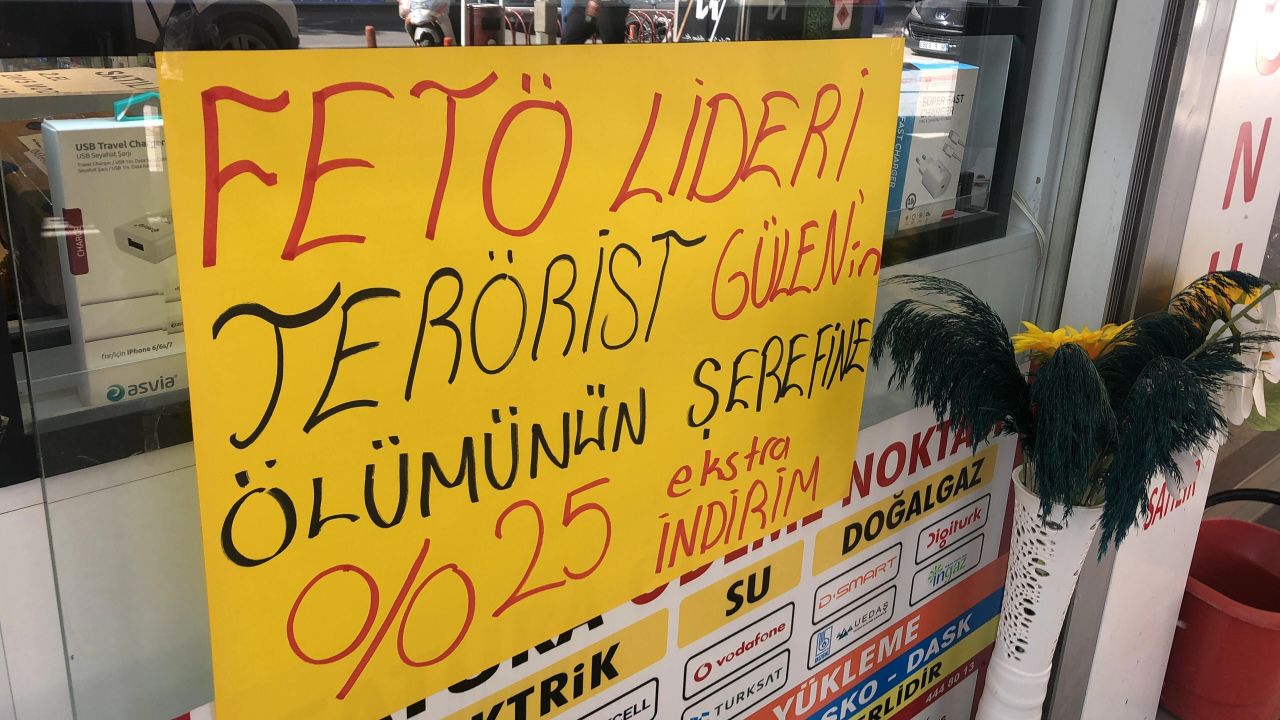 FETÖ LİDERİ
TERÖRİST GÜLENin
ÖLÜMÜNÜN ŞEREFİNE
%25 ekstra İNDİRİM
USB Travel Charger
USB Seyahat Şarjı
CHARGE
for/için iPhone 6/6s/7
asvia
SUPER FAST
CHARGER
FAST CHARGER
SU
DOĞALGAZ
vodafone
TÜRKSAT
D-SMART
UEDAŞ
Digiturk
ingaz
YÜKLEME
DASK
444 80 13